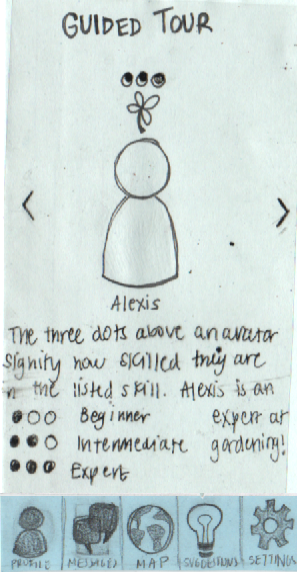 GUIDED TOUR
Alexis
The three dots above an avatar
signify how skilled they are
in the listed skill. Alexis is an
Beginner expert at
Intermediate gardening!
Expert
PROFILE MESSAGES MAP SUGGESTIONS SETTINGS